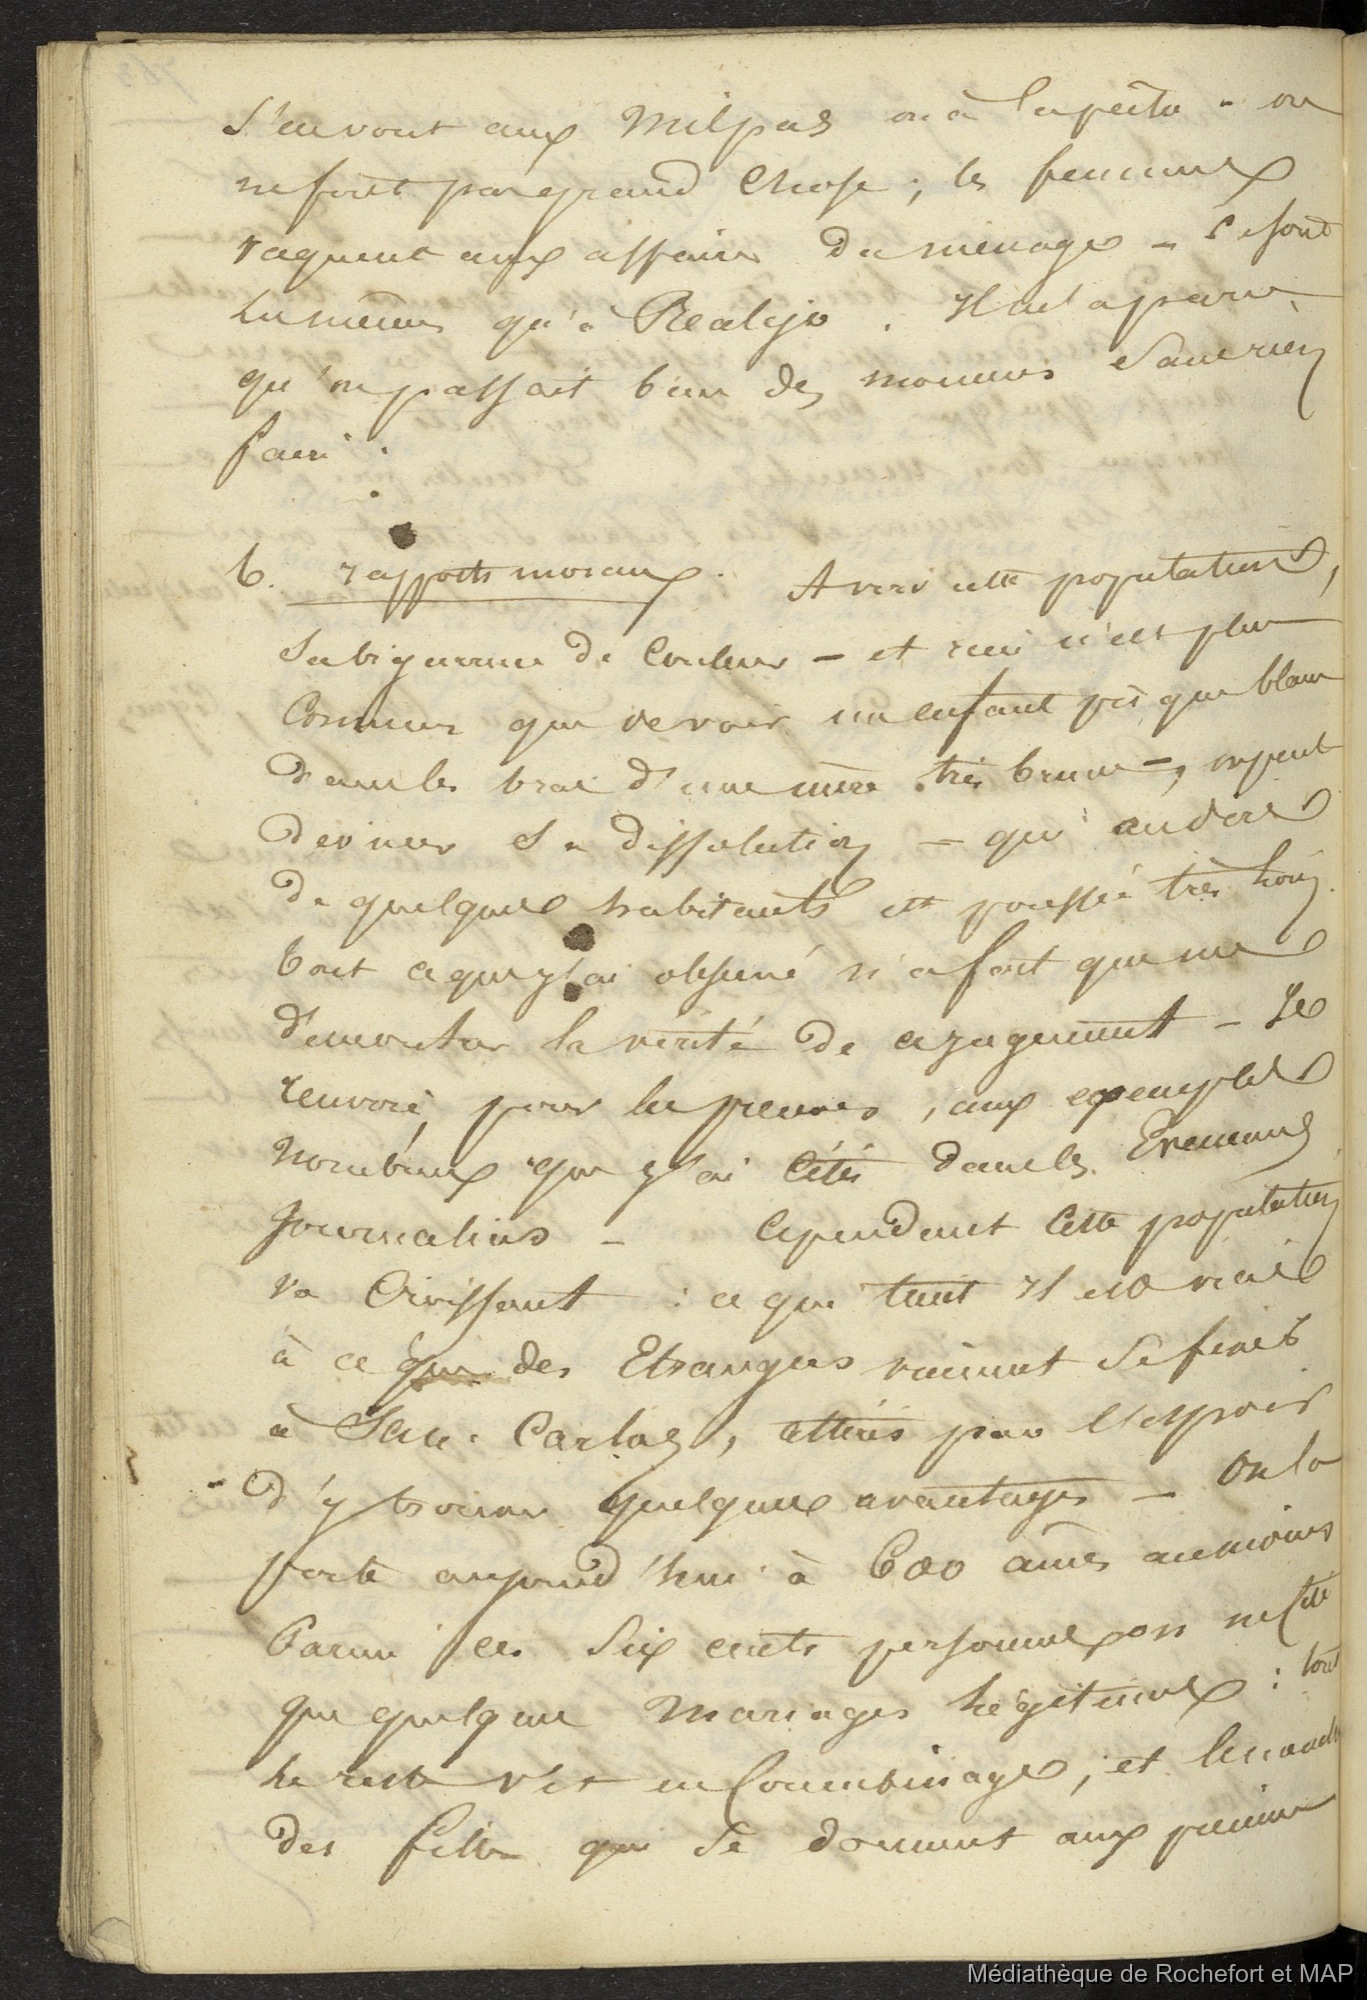 s'en vont aux Milpas ou à la pêche - ou
ne font pas grand chose ; les femmes
vaquent aux affaires du ménage - ce sont
les mêmes qu'à Realejo . Il m'a paru
qu'on passait bien des moments sans rien
faire .
6. rapports moraux . A voir cette population,
sa bigarrure de couleur - et rien n'est plus
commun que de voir un enfant presque blanc
dans les bras d'une mère très brune -, on peut
deviner sa dissolution - qui au dire
de quelques habitants est poussée très loin.
tout ce que j'ai observé n'a fait que me
démontrer la vérité de ce jugement - Je
renvoie, pour les preuves, aux exemples
nombreux que j'ai cités dans les Evenemens
journaliers - Cependant cette population
va croissant : ce qui tient il est vrai
à ce que des Etrangers viennent se fixer
à San Carlos, attirés par l'espoir
d'y trouver quelques avantages - on la
porte aujourd'hui à 600 âmes au moins
Parmi ces six cents personnes on ne cite
que quelques mariages légitimes : tout
le reste vit en concubinage, et
des filles qui se donnent aux premiers
Médiathèque de Rochefort et MAP